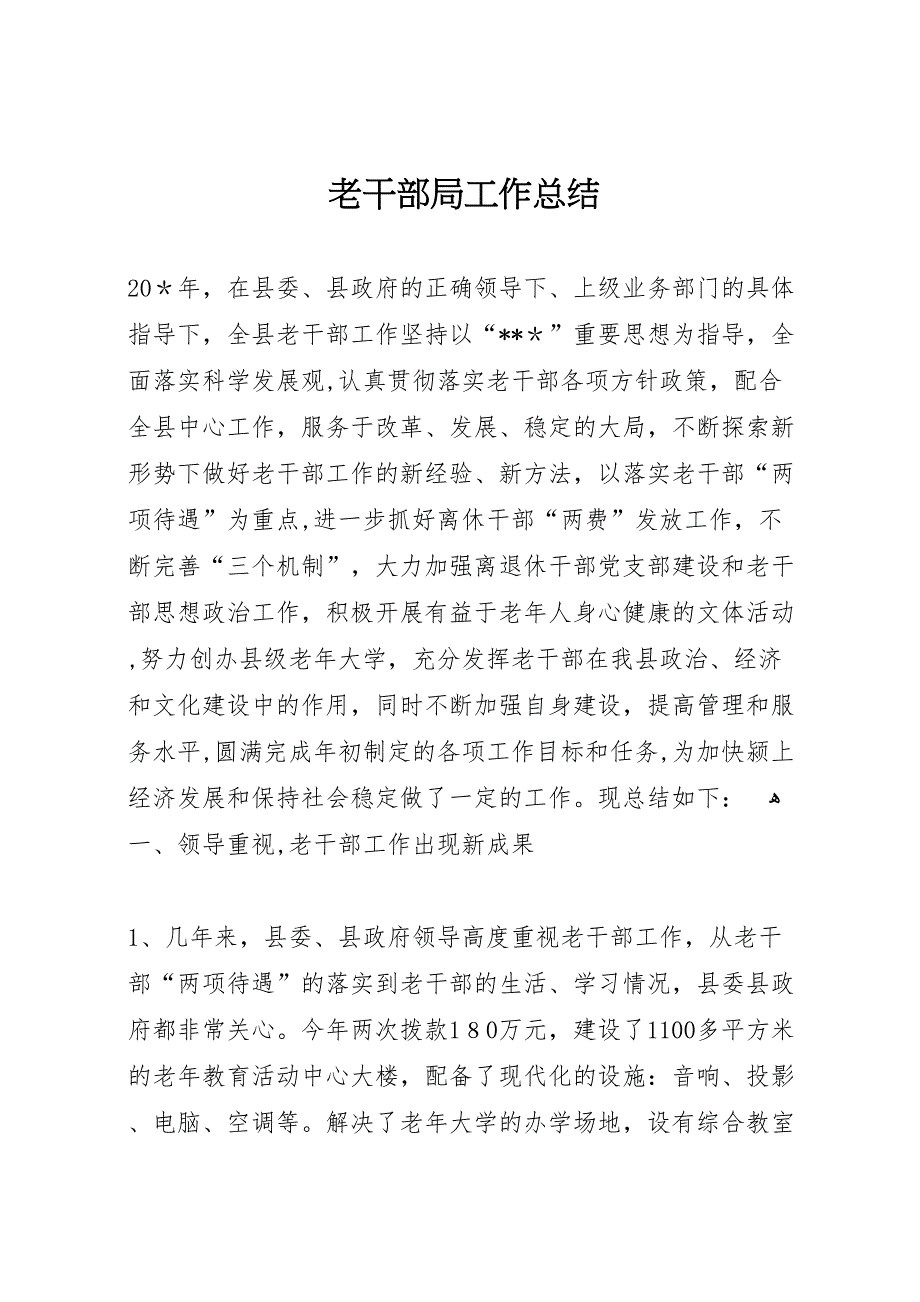 老干部局工作总结
20＊年，在县委、县政府的正确领导下、上级业务部门的具体
指导下，全县老干部工作坚持以“**＊”重要思想为指导，全
面落实科学发展观,认真贯彻落实老干部各项方针政策，配合
全县中心工作，服务于改革、发展、稳定的大局，不断探索新
形势下做好老干部工作的新经验、新方法，以落实老干部“两
项待遇”为重点,进一步抓好离休干部“两费”发放工作，不
断完善“三个机制”，大力加强离退休干部党支部建设和老干
部思想政治工作，积极开展有益于老年人身心健康的文体活动
,努力创办县级老年大学，充分发挥老干部在我县政治、经济
和文化建设中的作用，同时不断加强自身建设，提高管理和服
务水平,圆满完成年初制定的各项工作目标和任务,为加快颍上
经济发展和保持社会稳定做了一定的工作。现总结如下： ﻫ
一、领导重视,老干部工作出现新成果
1、几年来，县委、县政府领导高度重视老干部工作，从老干
部“两项待遇”的落实到老干部的生活、学习情况，县委县政
府都非常关心。今年两次拨款1８0万元，建设了1100多平方米
的老年教育活动中心大楼，配备了现代化的设施：音响、投影
、电脑、空调等。解决了老年大学的办学场地，设有综合教室